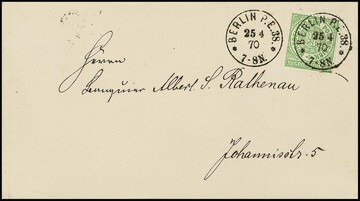 BERLIN P.E.38.
25 4
70
* 7-8N. *
BERLIN P.E.38.
25 4
70
* 7-8N. *
Herrn
Banquier Albert S. Rathenau
Johannisstr. 5